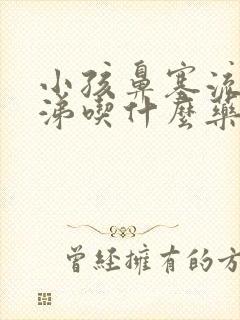 小孩鼻塞流
涕喫什麼藥
曾經擁有的方